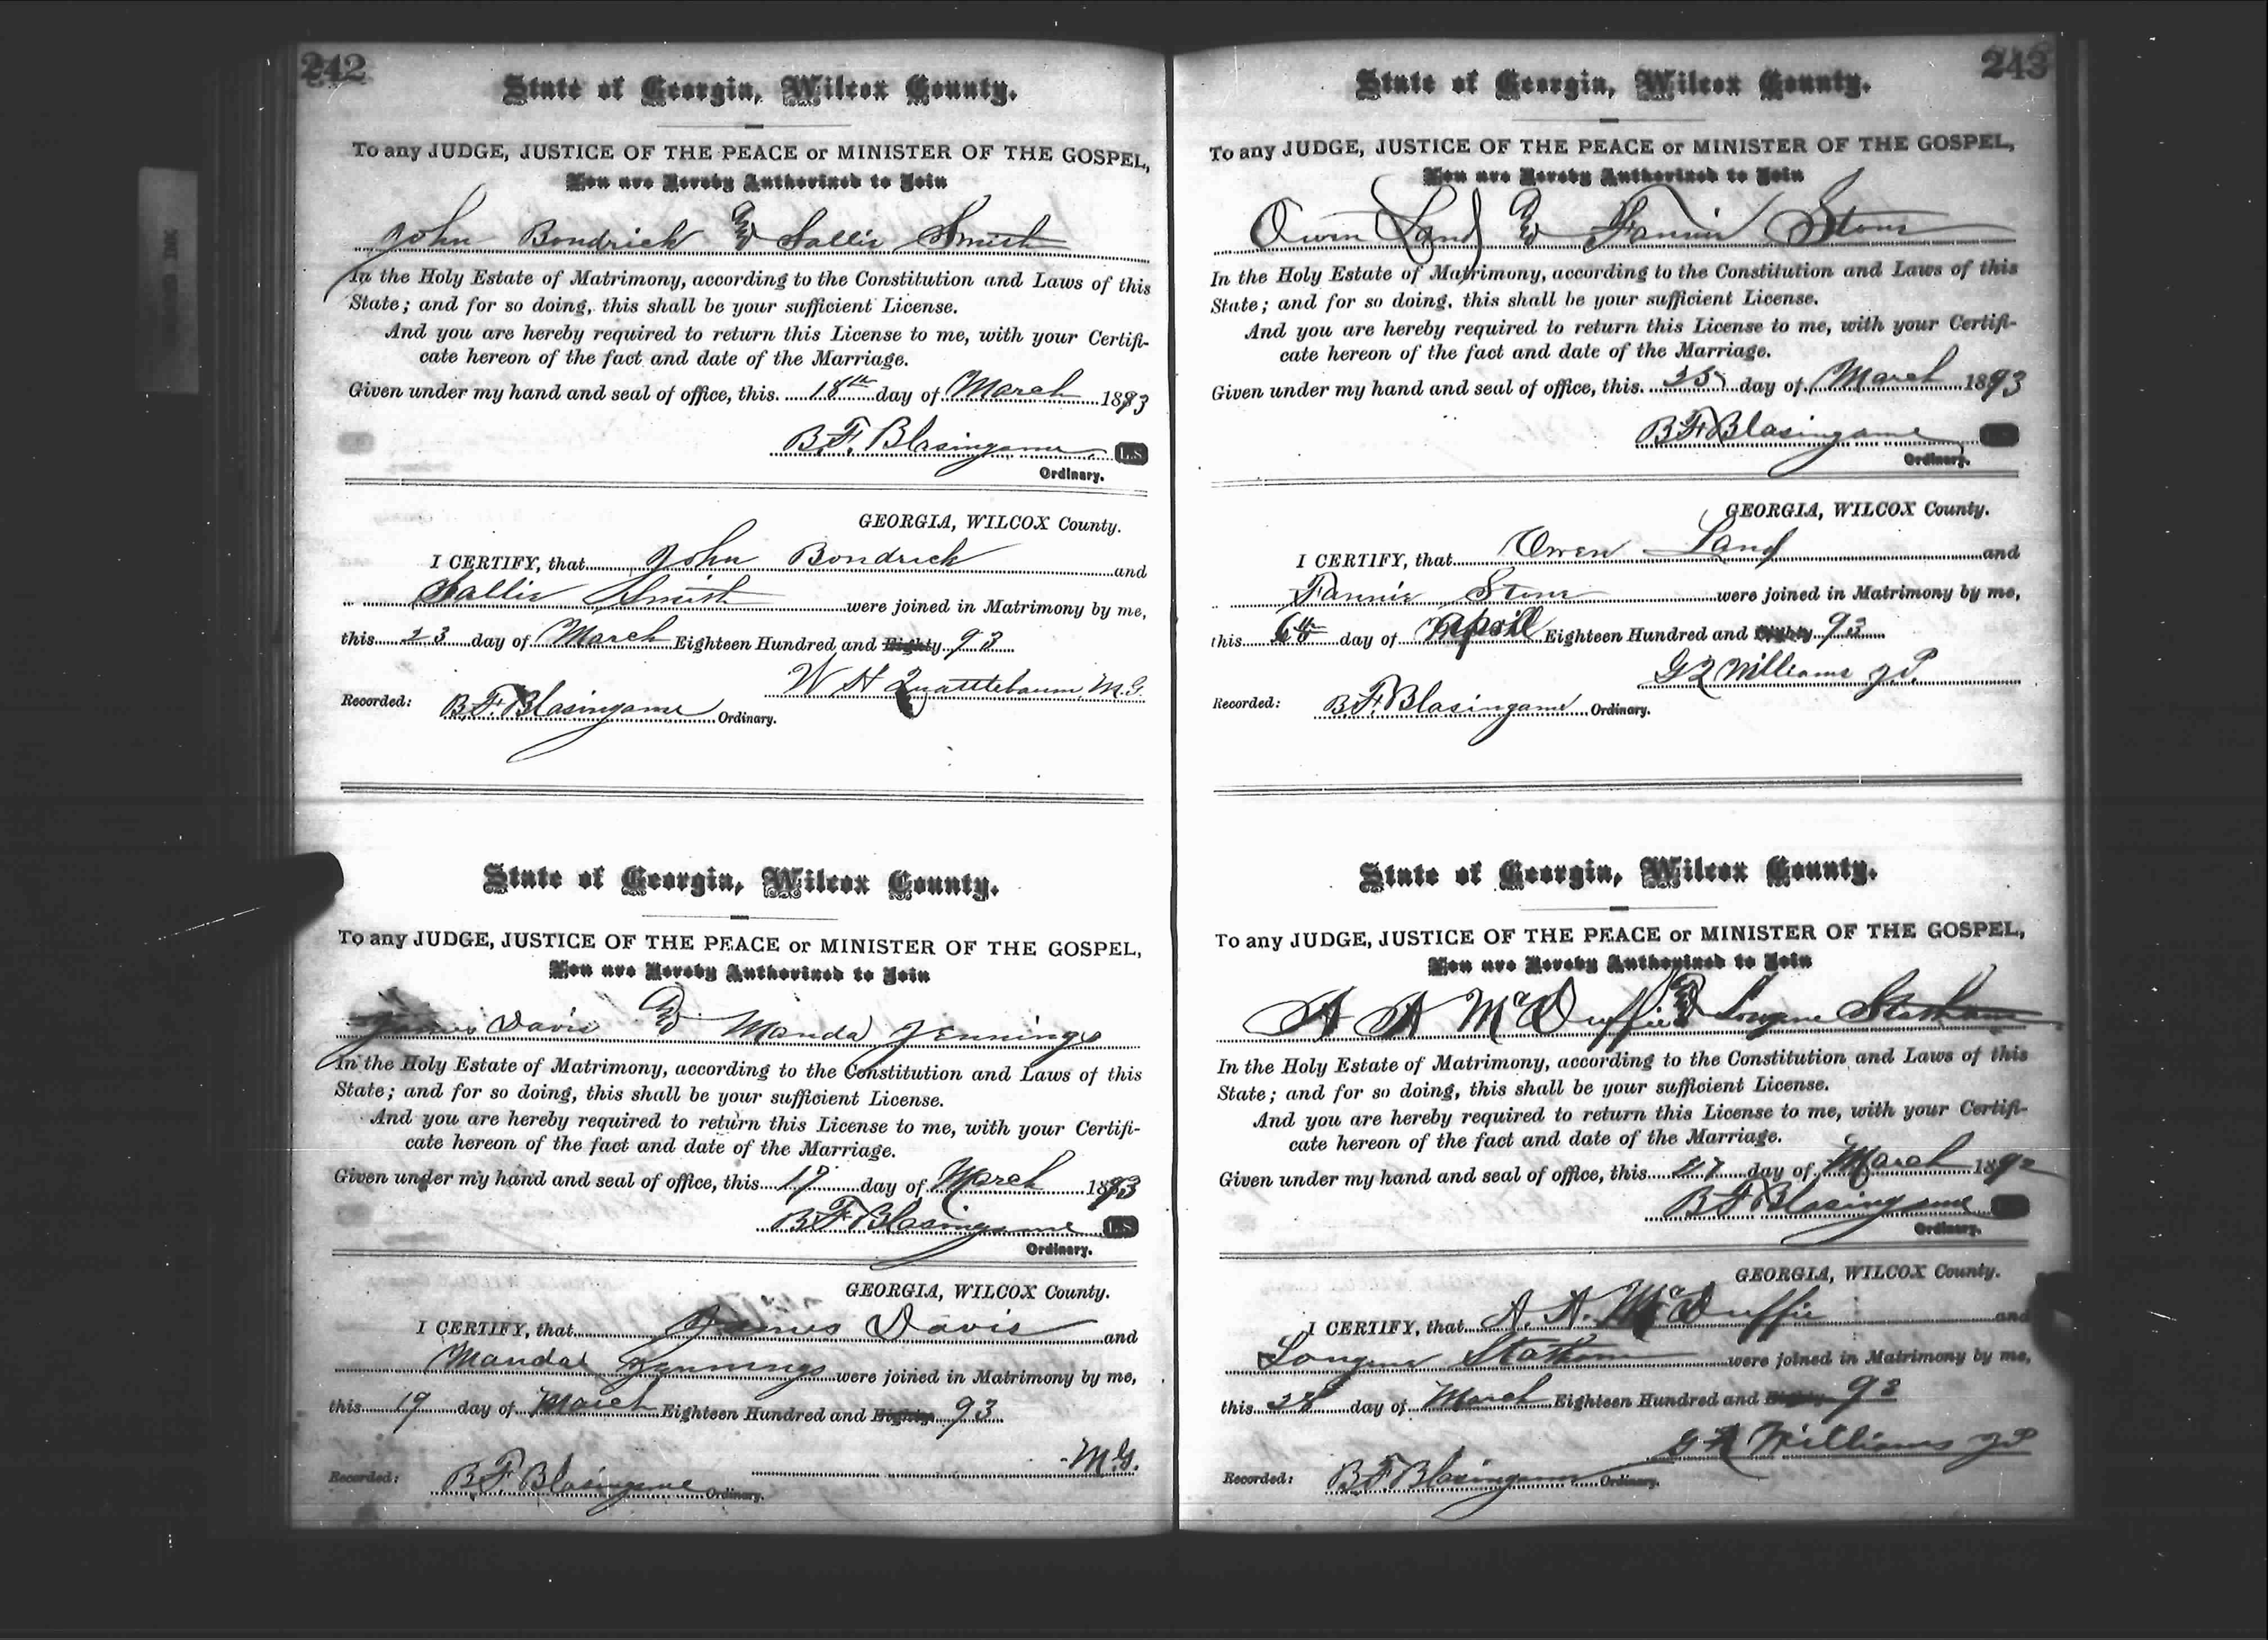 242
State of Georgia, Wilcox County.
To any JUDGE, JUSTICE OF THE PEACE or MINISTER OF THE GOSPEL,
You are Hereby Authorized to Join
John Bondrick & Sallie Smith
In the Holy Estate of Matrimony, according to the Constitution and Laws of this
State; and for so doing, this shall be your sufficient License.
And you are hereby required to return this License to me, with your Certifi-
cate hereon of the fact and date of the Marriage.
Given under my hand and seal of office, this 18th day of March 1893
B.F. Blasingame L.S.
Ordinary.
GEORGIA, WILCOX County.
I CERTIFY, that John Bondrick and
Sallie Smith were joined in Matrimony by me,
this 23 day of March Eighteen Hundred and Eighty 93
W H Quattlebaum M.G.
Recorded: B.F. Blasingame Ordinary.
State of Georgia, Wilcox County.
To any JUDGE, JUSTICE OF THE PEACE or MINISTER OF THE GOSPEL,
You are Hereby Authorized to Join
James Davis & Manda Jennings
In the Holy Estate of Matrimony, according to the Constitution and Laws of this
State; and for so doing, this shall be your sufficient License.
And you are hereby required to return this License to me, with your Certifi-
cate hereon of the fact and date of the Marriage.
Given under my hand and seal of office, this 17 day of March 1893
B F Blasingame L.S.
Ordinary.
GEORGIA, WILCOX County.
I CERTIFY, that James Davis and
Manda Jennings were joined in Matrimony by me,
this 19 day of March Eighteen Hundred and Eighty 93
M.G.
Recorded: B.F. Blasingame Ordinary.
243
State of Georgia, Wilcox County.
To any JUDGE, JUSTICE OF THE PEACE or MINISTER OF THE GOSPEL,
You are Hereby Authorized to Join
Owen Land & Fannie Stone
In the Holy Estate of Matrimony, according to the Constitution and Laws of this
State; and for so doing, this shall be your sufficient License.
And you are hereby required to return this License to me, with your Certifi-
cate hereon of the fact and date of the Marriage.
Given under my hand and seal of office, this 25 day of March 1893
B.F. Blasingame
Ordinary.
GEORGIA, WILCOX County.
I CERTIFY, that Owen Land and
Fannie Stone were joined in Matrimony by me,
this 6th day of April Eighteen Hundred and Eighty 93
G R Williams J.P.
Recorded: B.F. Blasingame Ordinary.
State of Georgia, Wilcox County.
To any JUDGE, JUSTICE OF THE PEACE or MINISTER OF THE GOSPEL,
You are Hereby Authorized to Join
A A McDuffie & Statham
In the Holy Estate of Matrimony, according to the Constitution and Laws of this
State; and for so doing, this shall be your sufficient License.
And you are hereby required to return this License to me, with your Certifi-
cate hereon of the fact and date of the Marriage.
Given under my hand and seal of office, this 27 day of March 1892
B F Blasingame
Ordinary.
GEORGIA, WILCOX County.
I CERTIFY, that A. A. McDuffie and
Statham were joined in Matrimony by me,
this 28 day of March Eighteen Hundred and Eighty 93
G R Williams JP
Recorded: B.F. Blasingame Ordinary.